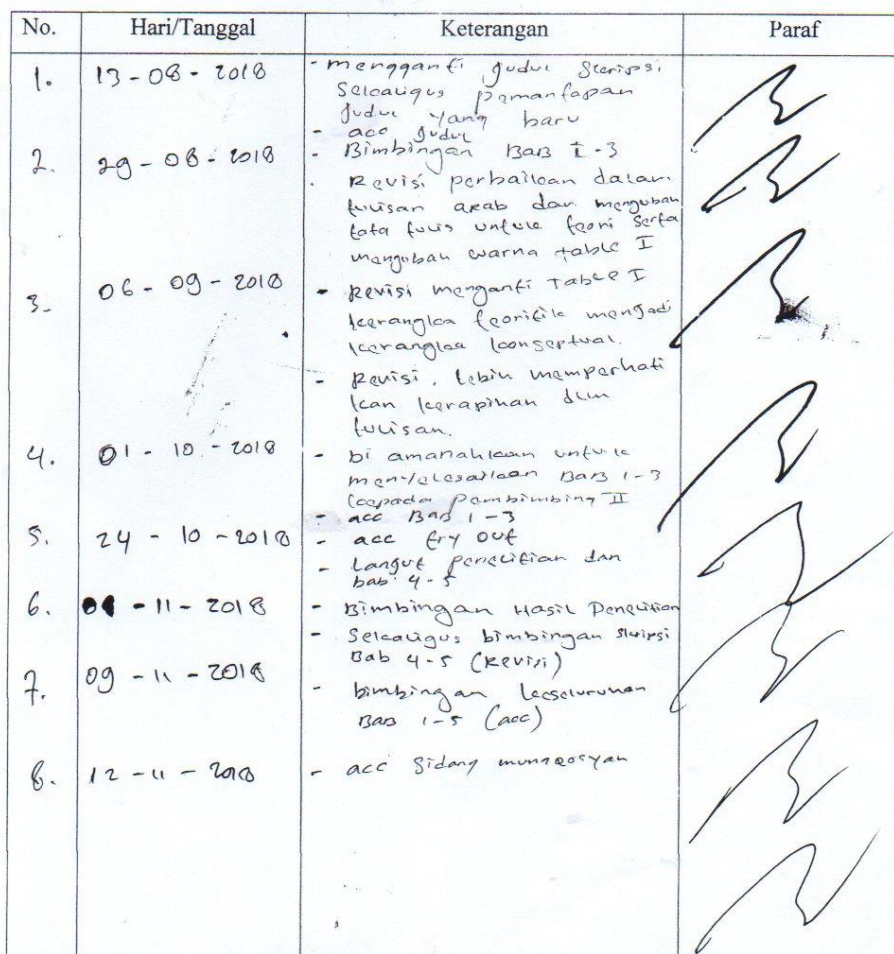 No. Hari/Tanggal Keterangan Paraf
1. 13-08-2018 - mengganti judul skripsi
sekaligus pemantapan
judul yang baru
- acc judul
2. 29-08-2018 - Bimbingan BAB I-3
- Revisi perbaikan dalam
tulisan arab dan mengubah
tata tulis untuk teori serta
mengubah warna table I
3. 06-09-2018 - Revisi menganti Table I
kerangka teoritik menjadi
kerangka konseptual.
- Revisi, lebih memperhati
kan kerapihan dlm
tulisan.
4. 01-10-2018 - Di amanahkan untuk
menyelesaikan BAB 1-3
kepada Pembimbing II
- acc BAB 1-3
5. 24-10-2018 - acc try out
- Langut penelitian dan
bab 4-5
6. -11-2018 - Bimbingan Hasil Penelitian
- Sekaligus bimbingan skripsi
Bab 4-5 (Revisi)
7. 09-11-2018 - bimbingan keseluruhan
BAB 1-5 (acc)
8. 12-11-2018 - acc Sidang munaqosyah